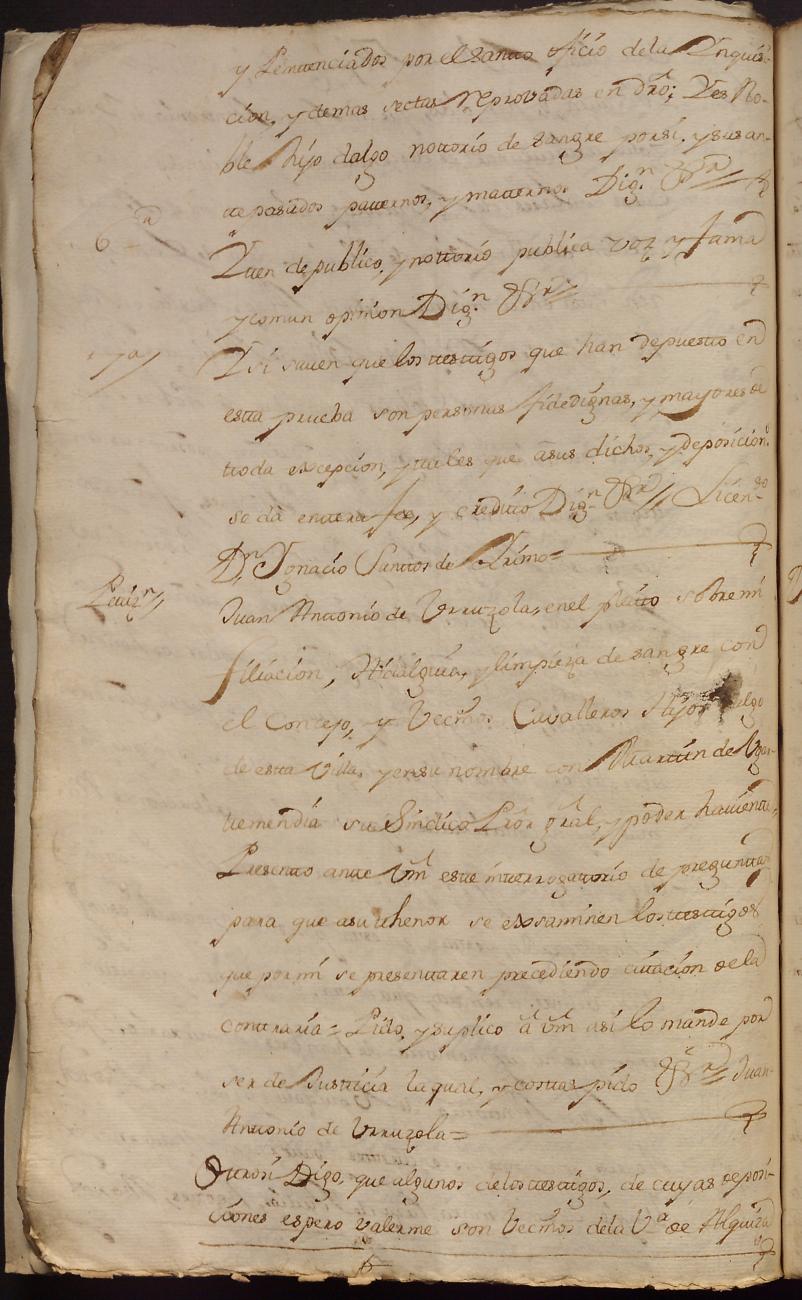 y Penitenciados por el Santo oficio de la Ynquisi-
cion, y demas sectas reprovadas en dro; Y es No-
ble hijo dalgo nottorio de sangre por si, y sus an-
tepasados patternos, y matternos Dig.n
6.a
Yten de publico, y nottorio publica voz y fama
y comun opinion Dig.n
7.a
Y si saven que los testigos que han depuesto en
esta prueba son personas fidedignas, y mayores de
ttoda excepcion, y tales que a sus dichos, y deposicion.s
se da entera fee, y creditto Dig.n // Licen.do
D.n Ygnacio Santtos de =
Juan Antonio de Urruzola, en el pleito sobre mi
filiacion, Hidalguia, y limpieza de sangre con
el Concejo, y Vecinos Cavalleros Hijos dalgo
de esta Villa, y en su nombre con Martin de Izee-
tiemendia su Sindico Pror gral, y poder haviente,
Presento ante Vm este interrogatorio de preguntas
para que a su thenor se exsaminen los testigos
que por mi se presentaren precediendo citacion de la
contraria = Pido, y suplico á Vm asi lo mande por
ser de Justicia la qual, y costas pido // Juan
Antonio de Urruzola =
Otrosi Digo, que algunos de los testigos, de cuyas deposi-
ciones espero valerme son Vecinos de la V.a de Alquiza